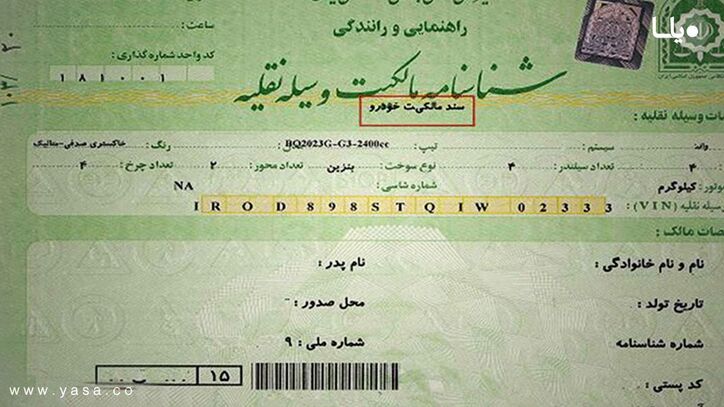 یاسا
راهنمایی و رانندگی
ساعت :
کد واحد شماره گذاری :
181001
شناسنامه مالکیت وسیله نقلیه
سند مالکیت خودرو
جمهوری اسلامی ایران
ات وسیله نقلیه :
وانت سیستم : تیپ : BQ2023G-G3-2400cc رنگ : خاکستری صدفی-متالیک
۴ تعداد سیلندر : ۴ نوع سوخت : بنزین تعداد محور : ۲ تعداد چرخ : ۴
موتور : کیلوگرم شماره شاسی : NA
وسیله نقلیه (VIN) : IROD898STQIW02333
صات مالک :
نام و نام خانوادگی : نام پدر :
تاریخ تولد : محل صدور :
شماره شناسنامه : شماره ملی : ۹
کد پستی :
۱۵
www.yasa.co